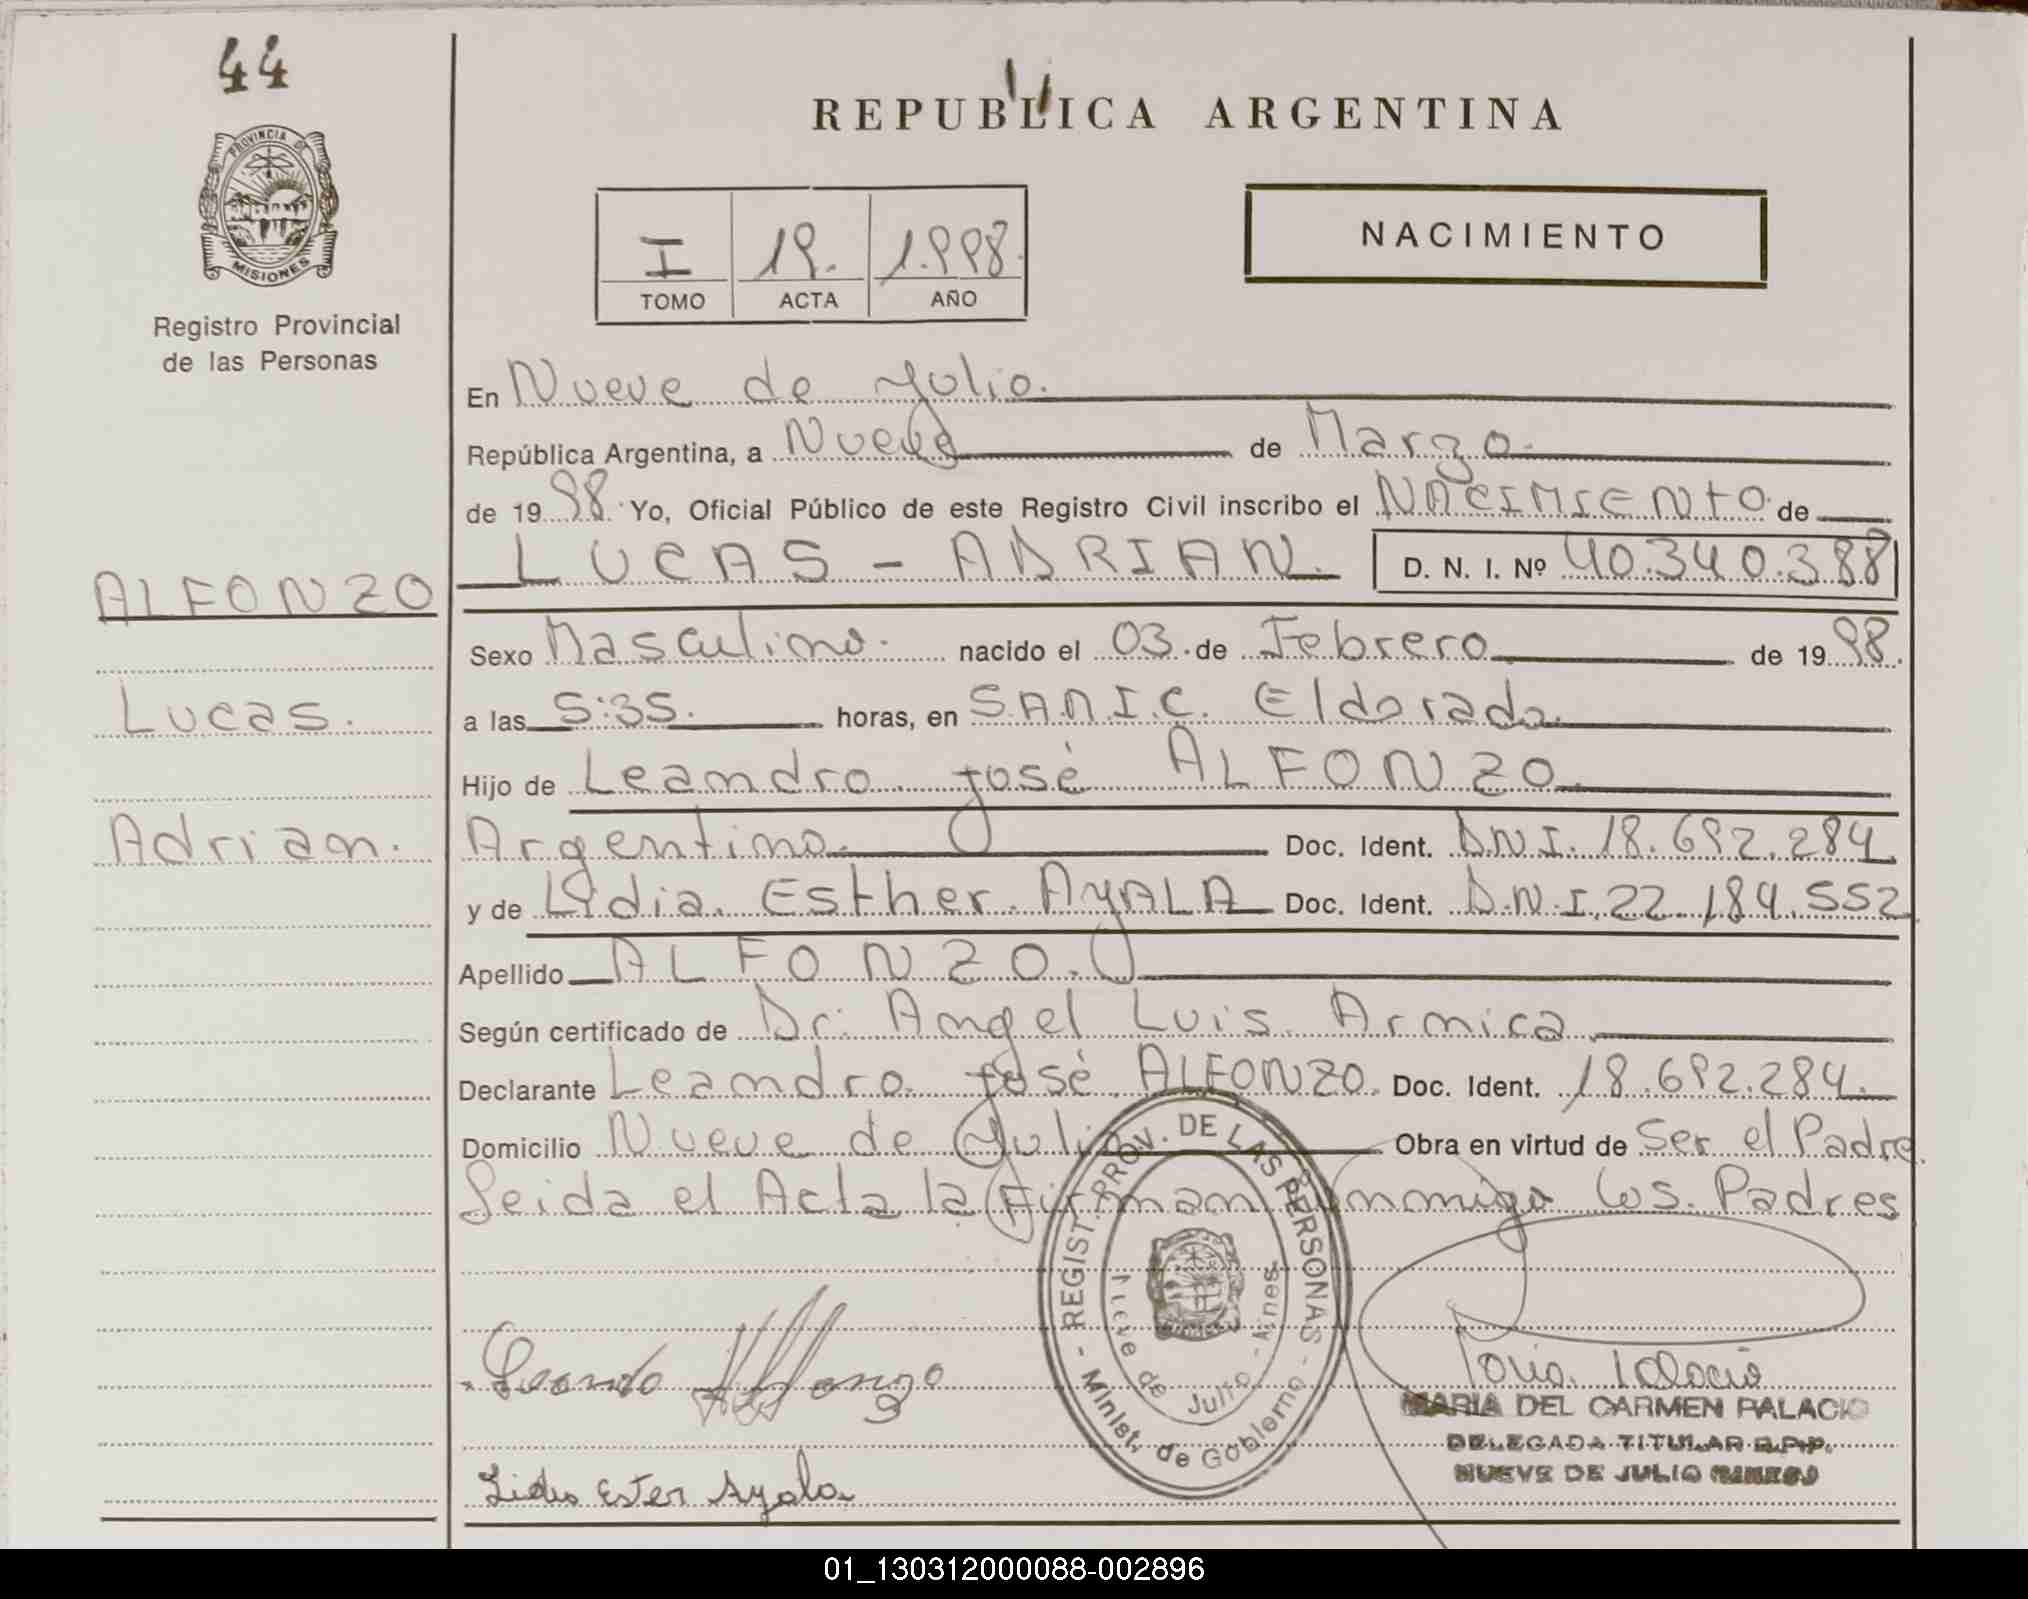 44
PROVINCIA DE
MISIONES
Registro Provincial
de las Personas
REPUBLICA ARGENTINA
I 19. 1.998.
TOMO ACTA AÑO
NACIMIENTO
En Nueve de Julio.
República Argentina, a Nueve de Marzo.
de 1998. Yo, Oficial Público de este Registro Civil inscribo el NACIMIENTO de
LUCAS - ADRIAN. D. N. I. Nº 40.340.388
ALFONZO
Sexo Masculino. nacido el 03. de Febrero de 1998.
Lucas.
a las 5:35. horas, en S.A.M.I.C. Eldorado.
Hijo de Leandro José ALFONZO.
Adrian.
Argentino. Doc. Ident. D.N.I. 18.692.284.
y de Lidia Esther AyALA Doc. Ident. D.N.I. 22.184.552
Apellido ALFONZO.
Según certificado de Dr. Angel Luis Armica
Declarante Leandro José ALFONZO. Doc. Ident. 18.692.284.
Domicilio Nueve de Julio Obra en virtud de Ser el Padre.
Leida el Acta la Firman conmigo los Padres
- REGIST. PROV. DE LAS PERSONAS -
Minist. de Gobierno
Nueve de Julio - Mnes.
Leandro Alfonzo
Maria Palacio
MARIA DEL CARMEN PALACIO
DELEGADA TITULAR R.P.P.
NUEVE DE JULIO
Lidia Ester Ayala
01_130312000088-002896